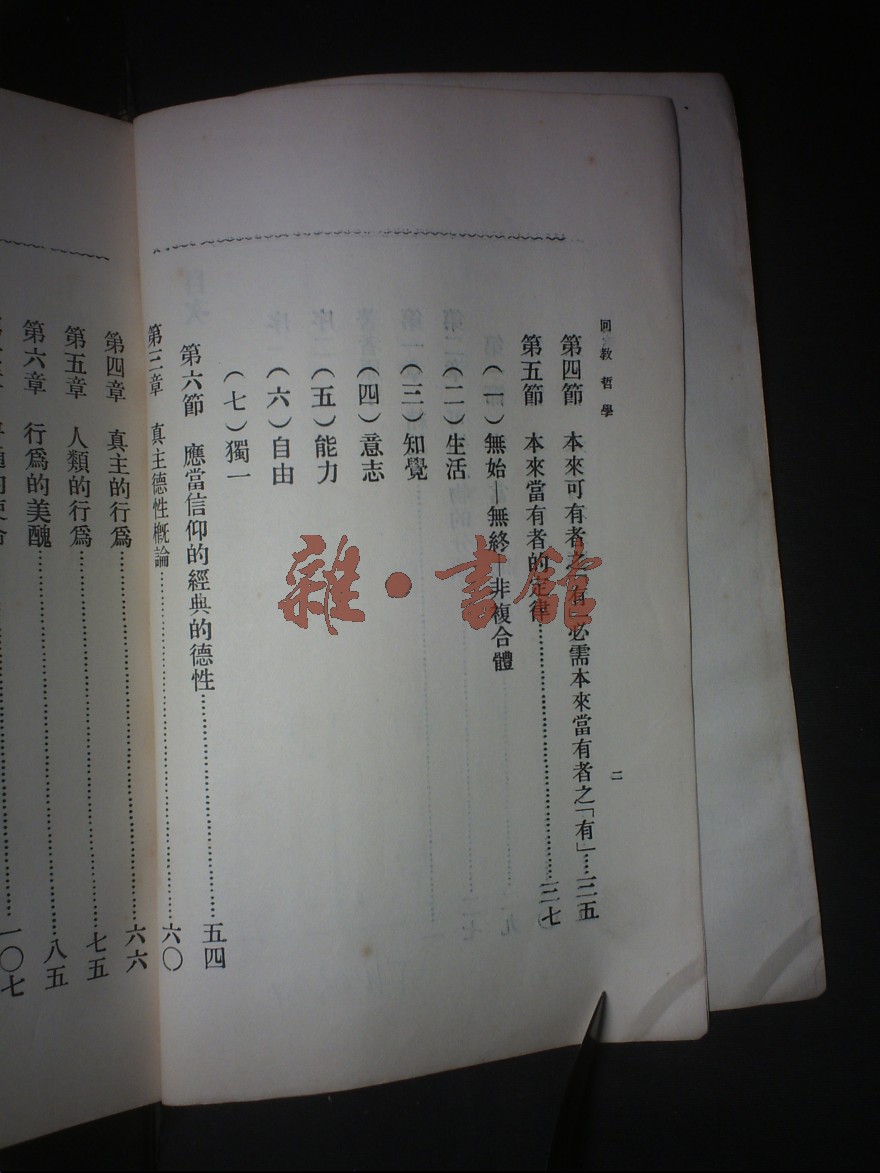 回教哲學
二
第四節 本來可有者之「有」必需本來當有者之「有」……三五
第五節 本來當有者的定律……三七
(一)無始—無終—非複合體
(二)生活
(三)知覺
(四)意志
(五)能力
(六)自由
(七)獨一
第六節 應當信仰的經典的德性……五四
第三章 真主德性概論……六〇
第四章 真主的行爲……六六
第五章 人類的行爲……七五
第六章 行爲的美醜……八五
一〇七
雜·書館